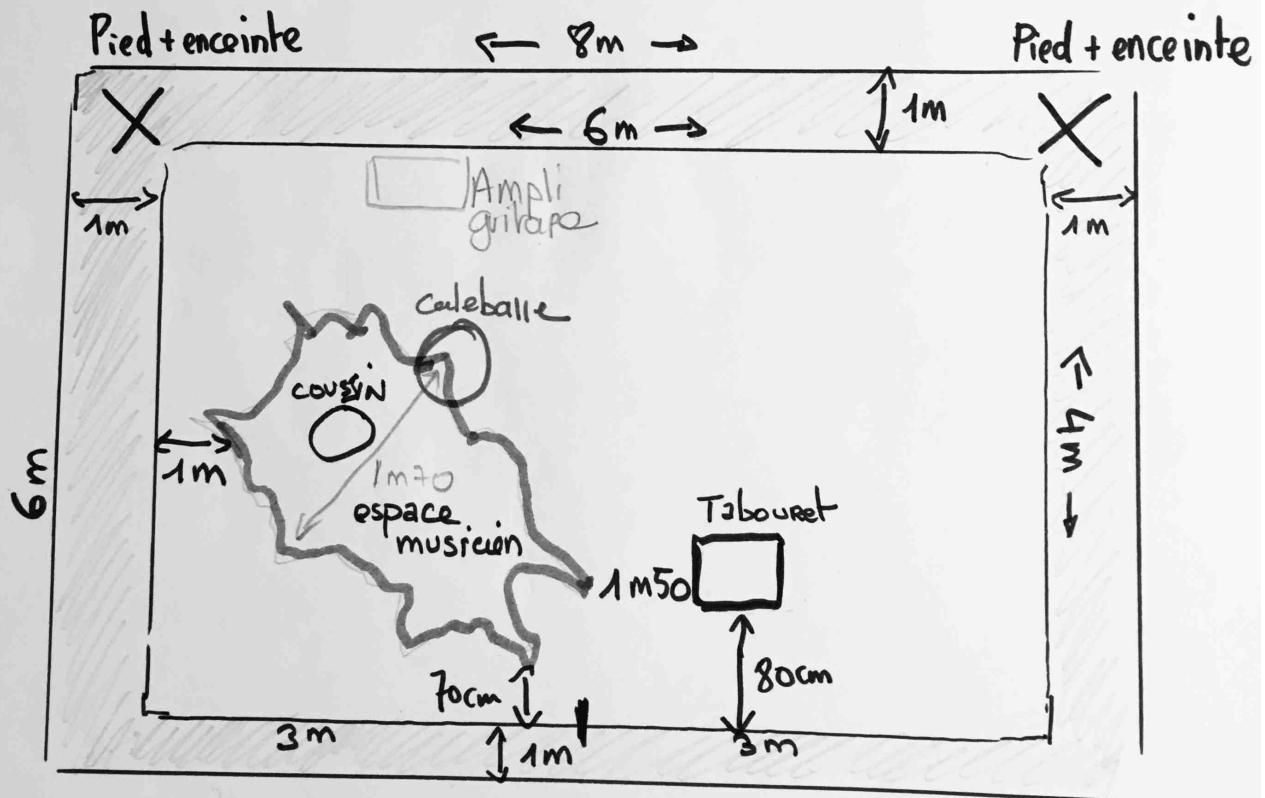 Pied + enceinte
8m
Pied + enceinte
6m
1m
Ampli
guitare
1m
1m
Calebasse
coussin
4m
1m
1m70
6m
espace
musicien
Tabouret
1m50
70cm
80cm
3m
1m
3m